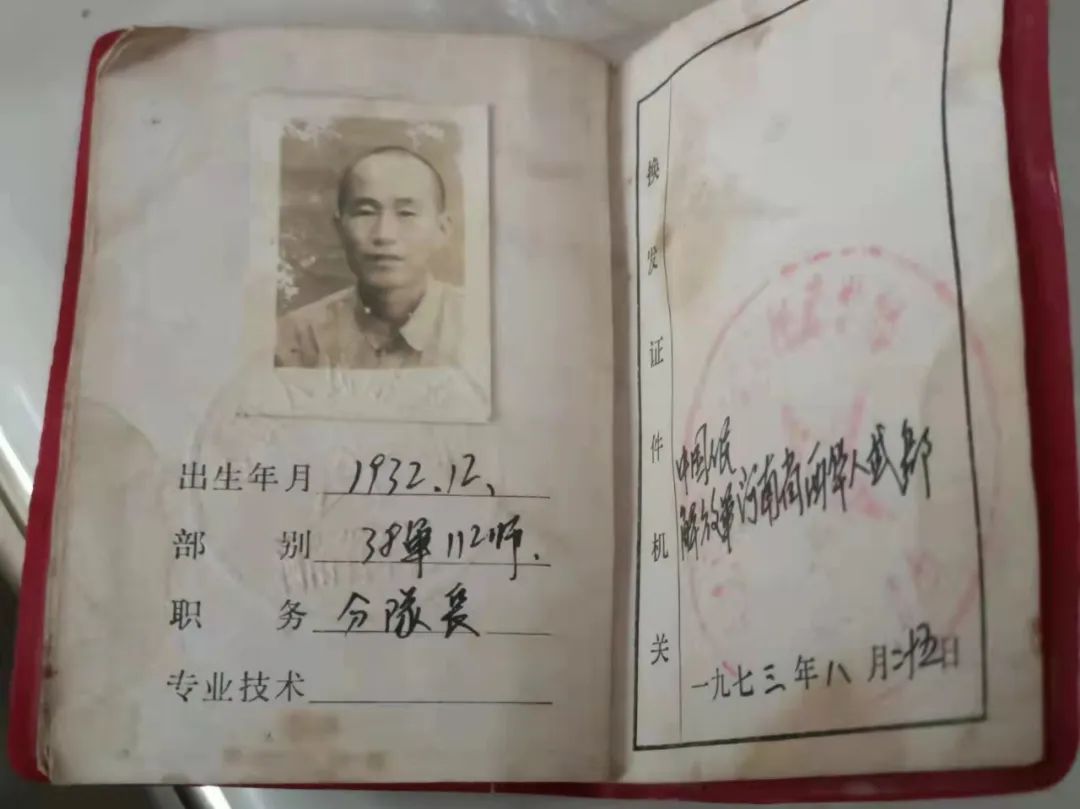 出生年月 1932.12.
部别 38軍112师.
职务 分隊長
专业技术
换发证件机关
中国人民
解放軍河南省西华人武部
一九七三年八月二十五日